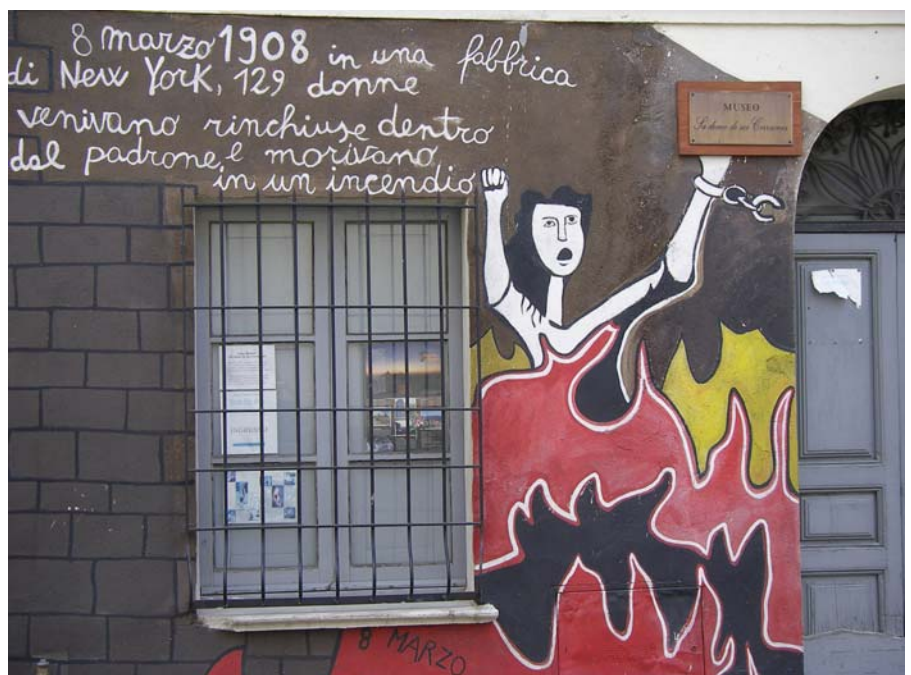 8 marzo 1908 in una fabbrica
di New York, 129 donne
venivano rinchiuse dentro
dal padrone, e morivano
in un incendio
MUSEO
8 MARZO